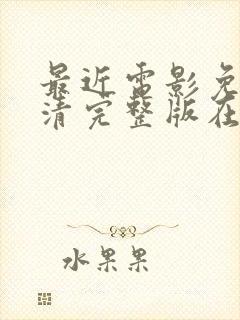 最近电影免
清完整版在
水果果